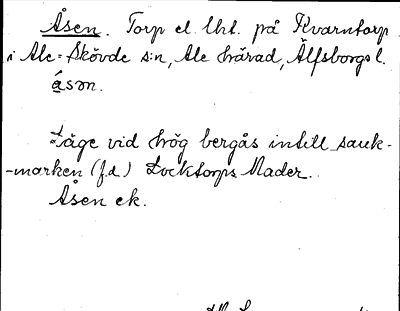 Åsen. Torp el. lht. på Kvarntorp
i Ale-Skövde s:n, Ale härad, Älfsborgs l.
åsən.
Läge vid hög bergås intill sank-
-marken (f.d.) Locktorps Mader.
Åsen ek.